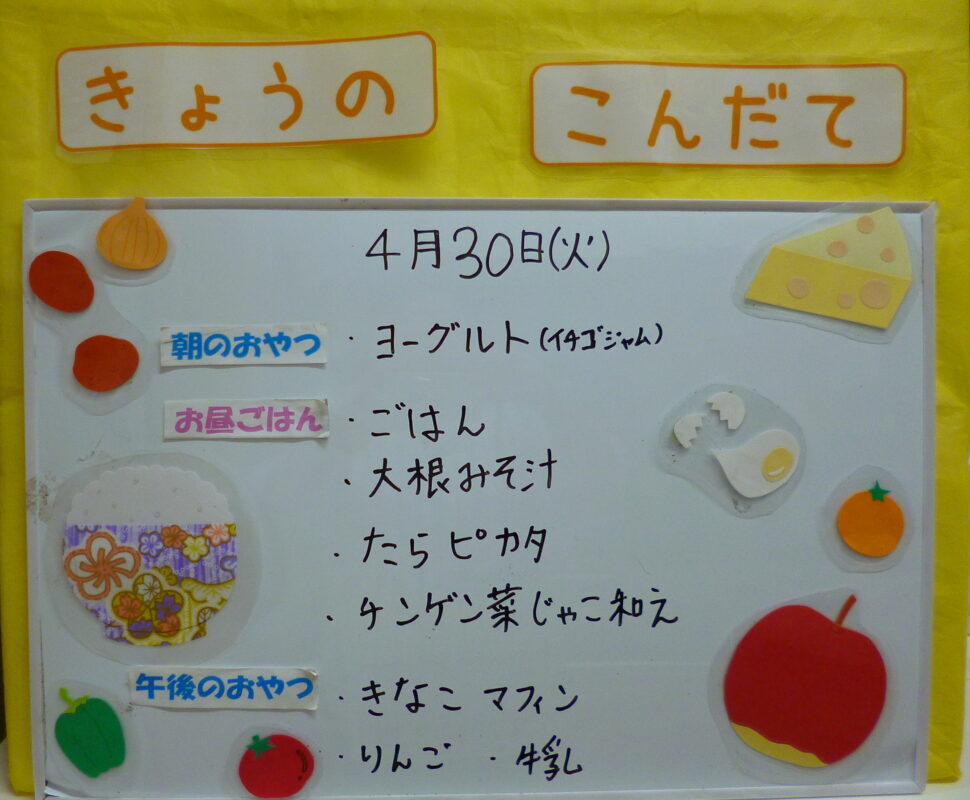 きょうの こんだて
4月30日(火)
朝のおやつ ・ヨーグルト(イチゴジャム)
お昼ごはん ・ごはん
・大根みそ汁
・たらピカタ
・チンゲン菜じゃこ和え
午後のおやつ ・きなこ マフィン
・りんご ・牛乳